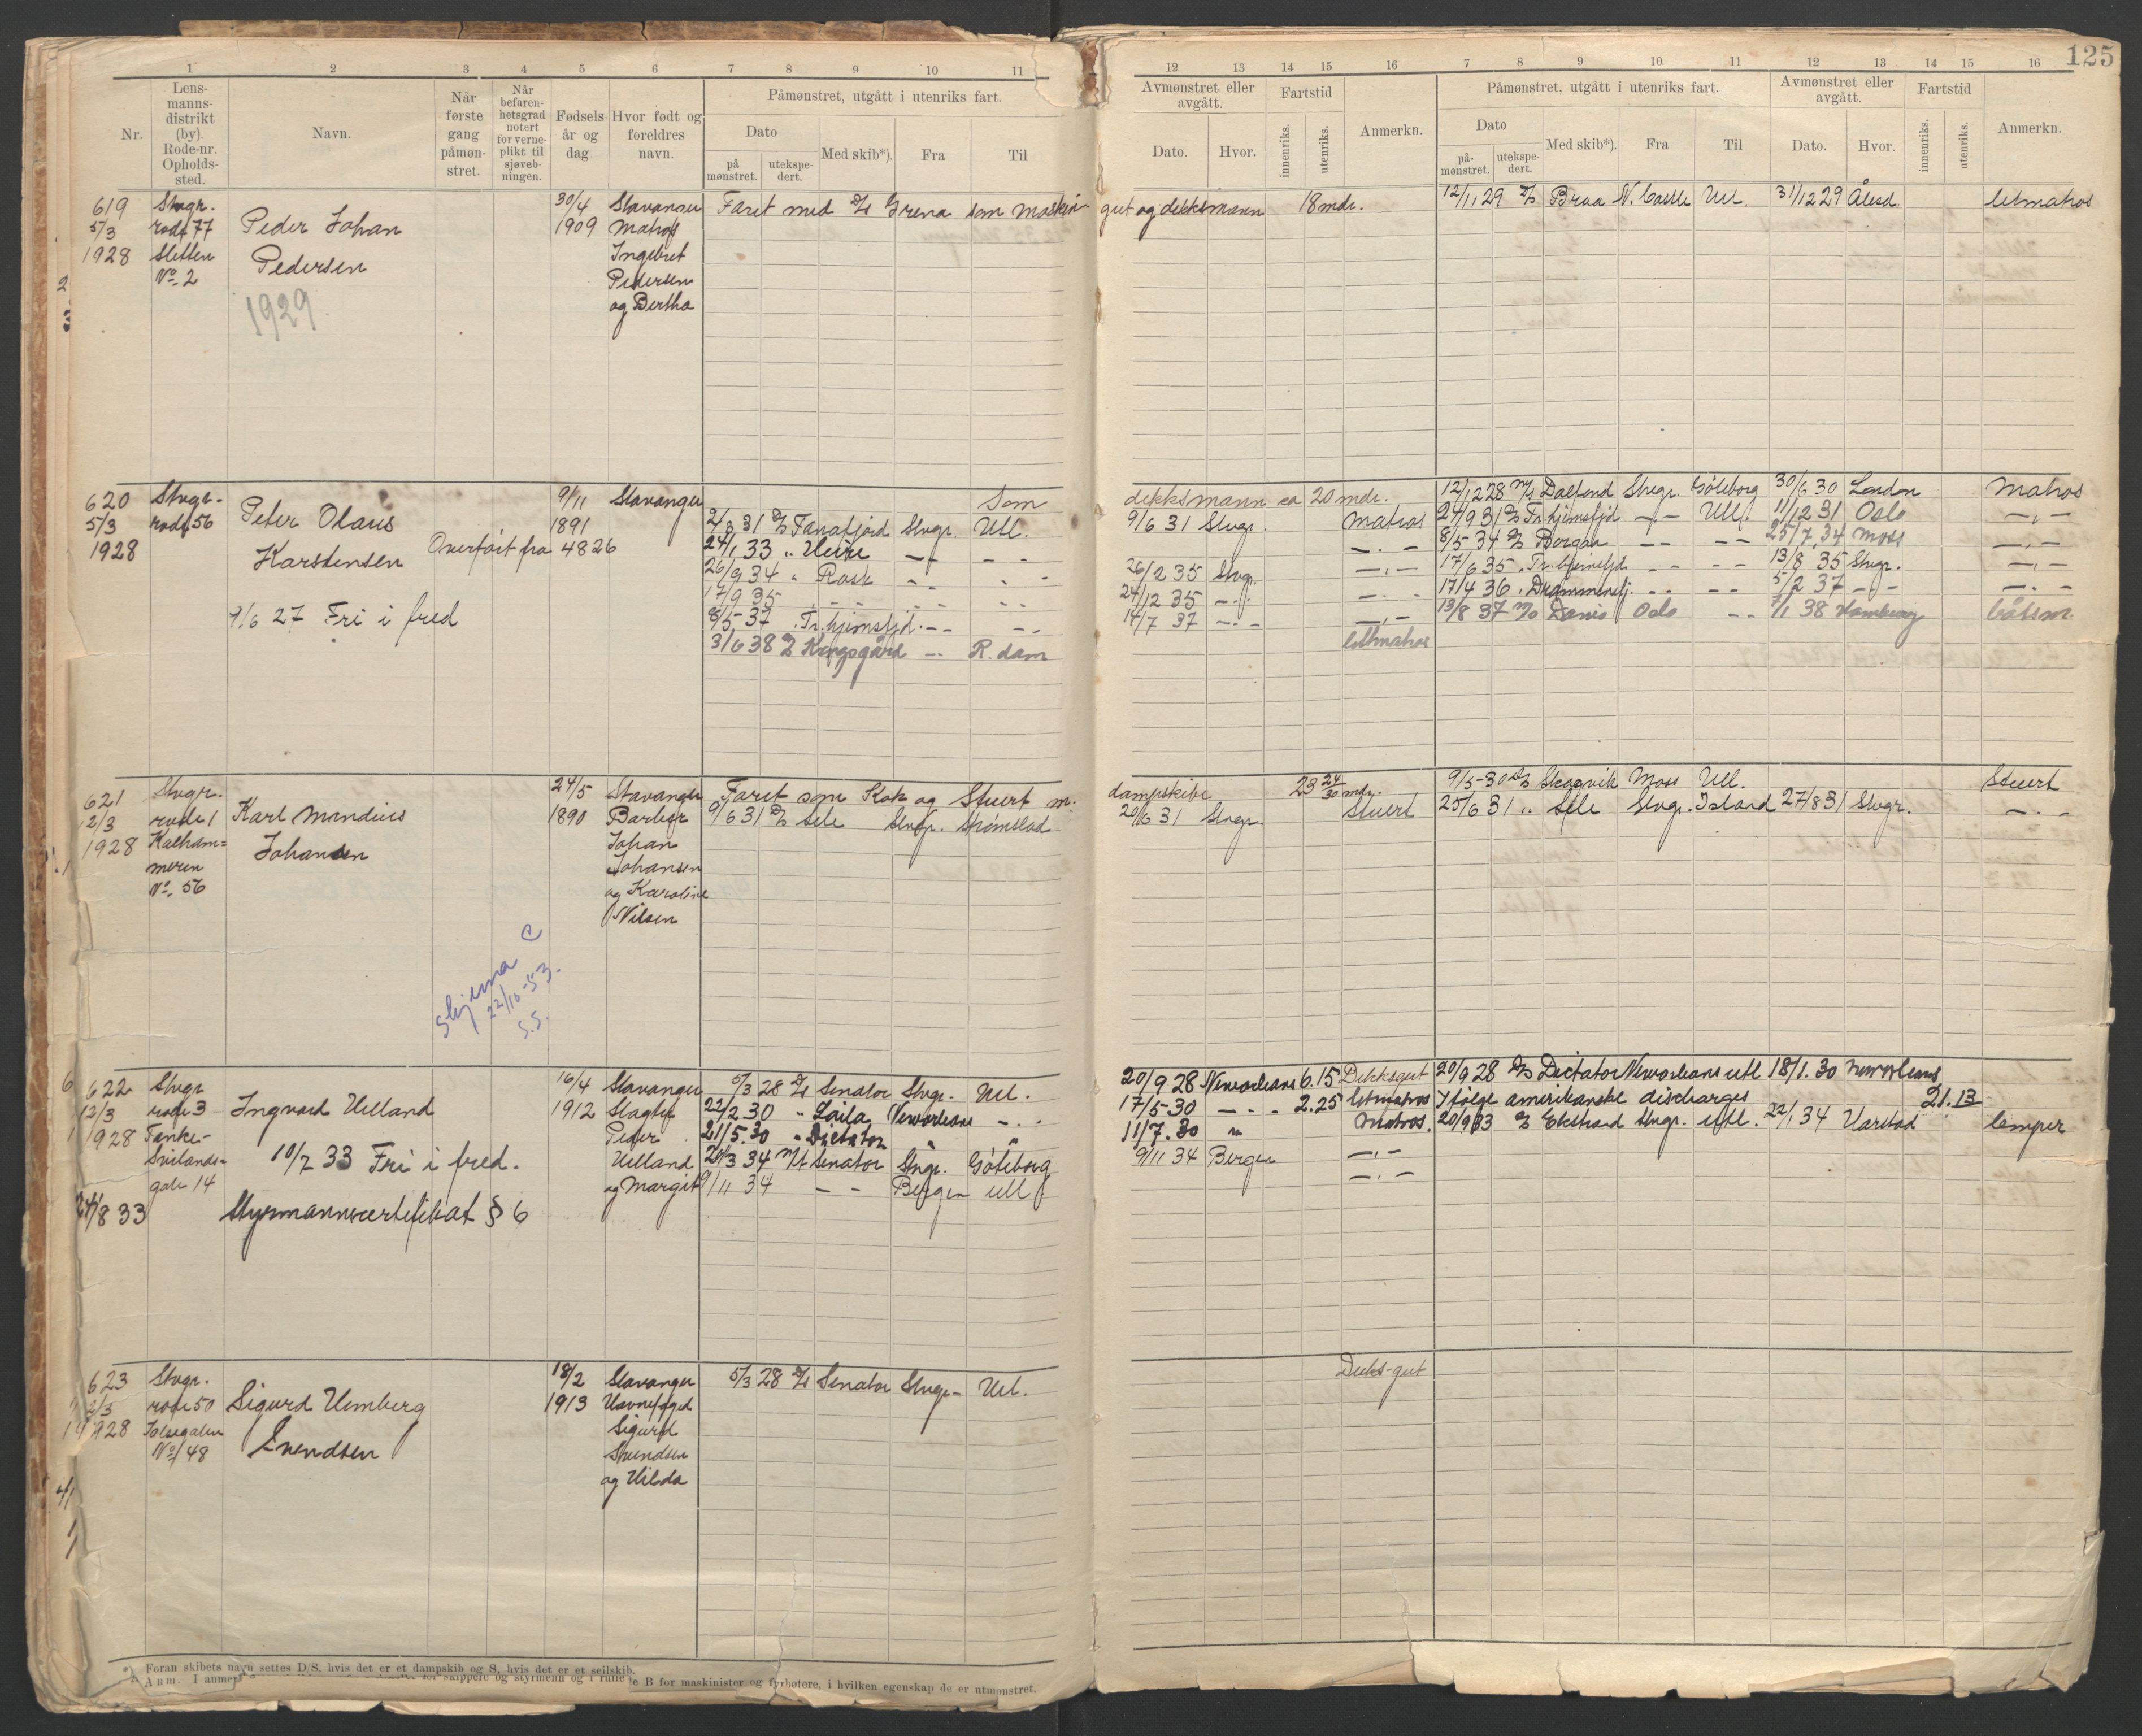 125
1 2 3 4 5 6 7 8 9 10 11
Nr.
Lens-
manns-
distrikt
(by).
Rode-nr.
Opholds-
sted.
Navn.
Når
første
gang
påmøn-
stret.
Når
befaren-
hetsgrad
notert
for verne-
plikt til
sjøveb-
ningen.
Fødsels-
år og
dag
Hvor født og
foreldres
navn.
Påmønstret, utgått i utenriks fart.
Dato
på
mønstret.
utekspe-
dert.
Med skib*).
Fra
Til
12 13 14 15 16 7 8 9 10 11 12 13 14 15 16
Avmønstret eller
avgått.
Dato.
Hvor.
Fartstid
innenriks.
utenriks.
Anmerkn.
Påmønstret, utgått i utenriks fart.
Dato
på-
mønstret.
utekspe-
dert.
Med skib*).
Fra
Til
Avmønstret eller
avgått.
Dato.
Hvor.
Fartstid
innenriks.
utenriks.
Anmerkn.
619 Stvgr. 30/4 Stavanger Faret med D/S Grena som maskin- gut og dekksmann 18 mdr. 12/11 29 D/S Brua N. Castle Utl. 31/12 29 Ålesd. letmatros
5/3 rode 77 Peder Johan 1909 Matros
1928 Sletten Pedersen Ingebret
No. 2 Pedersen
1929 og Bertha
620 Stvgr. 9/11 Stavanger Som dekksmann ca 20 mdr. 12/12 28 M/S Dalfond Stvgr. Göteborg 30/6 30 London Matros
5/3 rode 56 Peter Olaus 1891 2/3 31 D/S Fanafjord Stvgr. Utl. 9/6 31 Stvgr. Matros 24/9 31 D/S Tr.hjemsfjd — Utl. 11/12 31 Oslo —.—
1928 Karstensen Overført fra 4826 24/1 33 „ Heire — — —.— 8/5 34 D/S Borgaa — — 25/7 34 Moss —.—
26/9 34 „ Rask - - 26/2 35 Stvgr. —.— 17/6 35 „ Tr.hjemsfjd — — 13/8 35 Stvgr. —.—
17/9 35 - - - - 24/12 35 —.— —.— 17/4 36 „ Drammensfj. — — 5/2 37 — —.—
9/6 27 Fri i fred 8/5 37 „ Tr.hjemsfjd. — — 14/7 37 —.— —.— 13/8 37 M/S Danis Oslo — 7/1 38 Hamburg båtsm.
3/6 38 D/S Kongsgård — R.dam letmatros
621 Stvgr. 24/5 Stavanger Faret som Kok og Stuert m. dampskibe 23 24/30 mdr. 9/5 30 D/S Skagvik Moss Utl. Stuert
12/3 rode 1 Karl Mandius 1890 Barber 9/6 31 D/S Sele Stvgr. Strømstad 20/6 31 Stvgr. Stuert 25/6 31 „ Sele Stvgr. Island 27/8 31 Stvgr. —.—
1928 Kalham= Johansen Johan
meren Johansen
No. 56 og Karoline
Nilsen
Skjema C
22/10-53.
S.S.
622 Stvgr 16/4 Stavanger 5/3 28 D/S Senator Stvgr. Utl. 20/9 28 Neworleans 6.15 Dekksgut 20/9 28 D/S Dictator Neworleans utl 18/1.30 Neworleans
12/3 rode 3 Ingvard Helland 1912 Slagter 22/2.30 „ Laila Neworleans —.. 17/5-30 —.. 2.25 letmatros Ifølge amerikanske discharges 21.13
1928 Tanke- Peder 21/5.30 „ Dictator „ „ 11/7.30 „ Matros. 20/9 33 D/S Ekstrand Stvgr. utl. 22/1 34 Harstad lemper
Svilands= 10/7 33 Fri i fred. Helland 20/3 34 M/t Senator Stvgr. Göteborg 9/11 34 Bergen —.—
gate 14 og Margit 9/11 34 — — Bergen utl —.—
24/8 33 Styrmannscertifikat § 6
623 Stvgr. 18/2 Stavanger 5/3 28 D/S Senator Stvgr. Utl. Dekks-gut
12/3 rode 50 Sigurd Hemberg 1913 Havnefoged
1928 Svendsen Sigurd
No. 48 Svendsen
og Hilda
*) Foran skibets navn settes D/S, hvis det er et dampskib og S, hvis det er et seilskib.
Anm. I anmer for skippere og styrmenn og i rulle B for maskinister og fyrbøtere, i hvilken egenskap de er utmønstret.